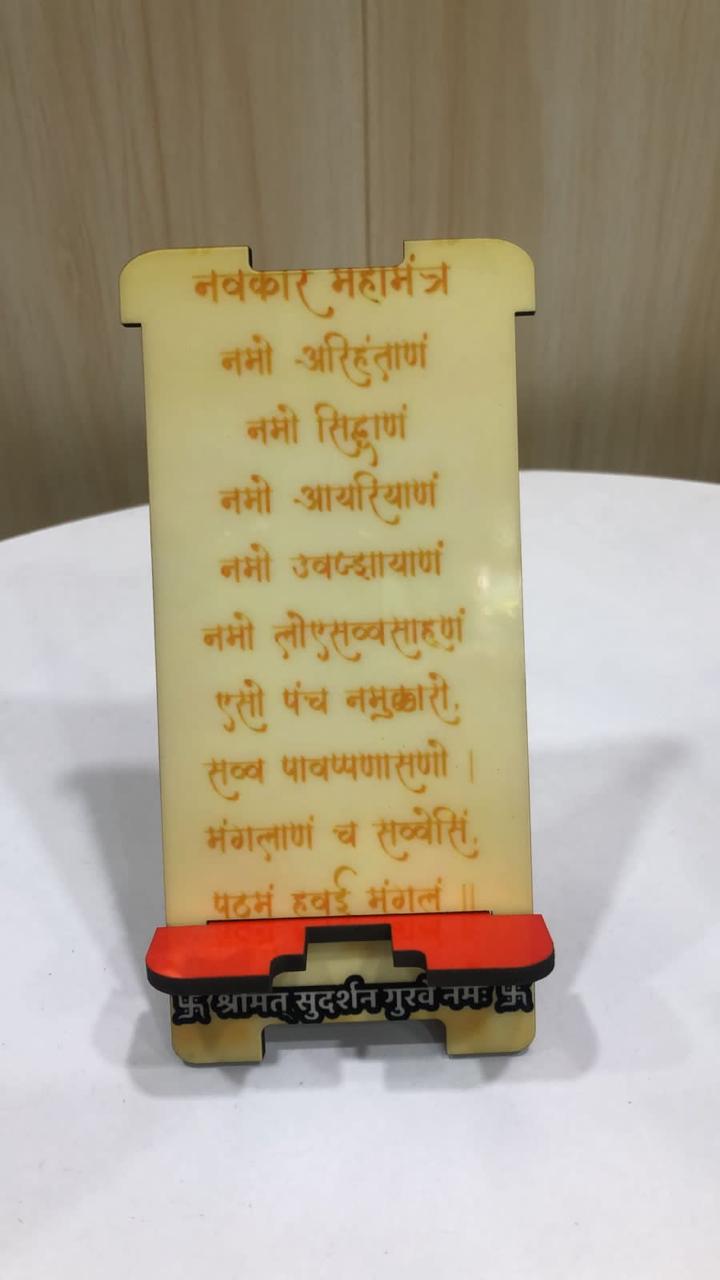 नवकार महामंत्र
नमो अरिहंताणं
नमो सिद्धाणं
नमो आयरियाणं
नमो उवज्झायाणं
नमो लोएसव्वसाहूणं
एसो पंच नमुक्कारो,
सव्व पावप्पणासणो |
मंगलाणं च सव्वेसिं,
पठमं हवई मंगलं ||
卐 श्रीमत् सुदर्शन गुरवे नमः 卐